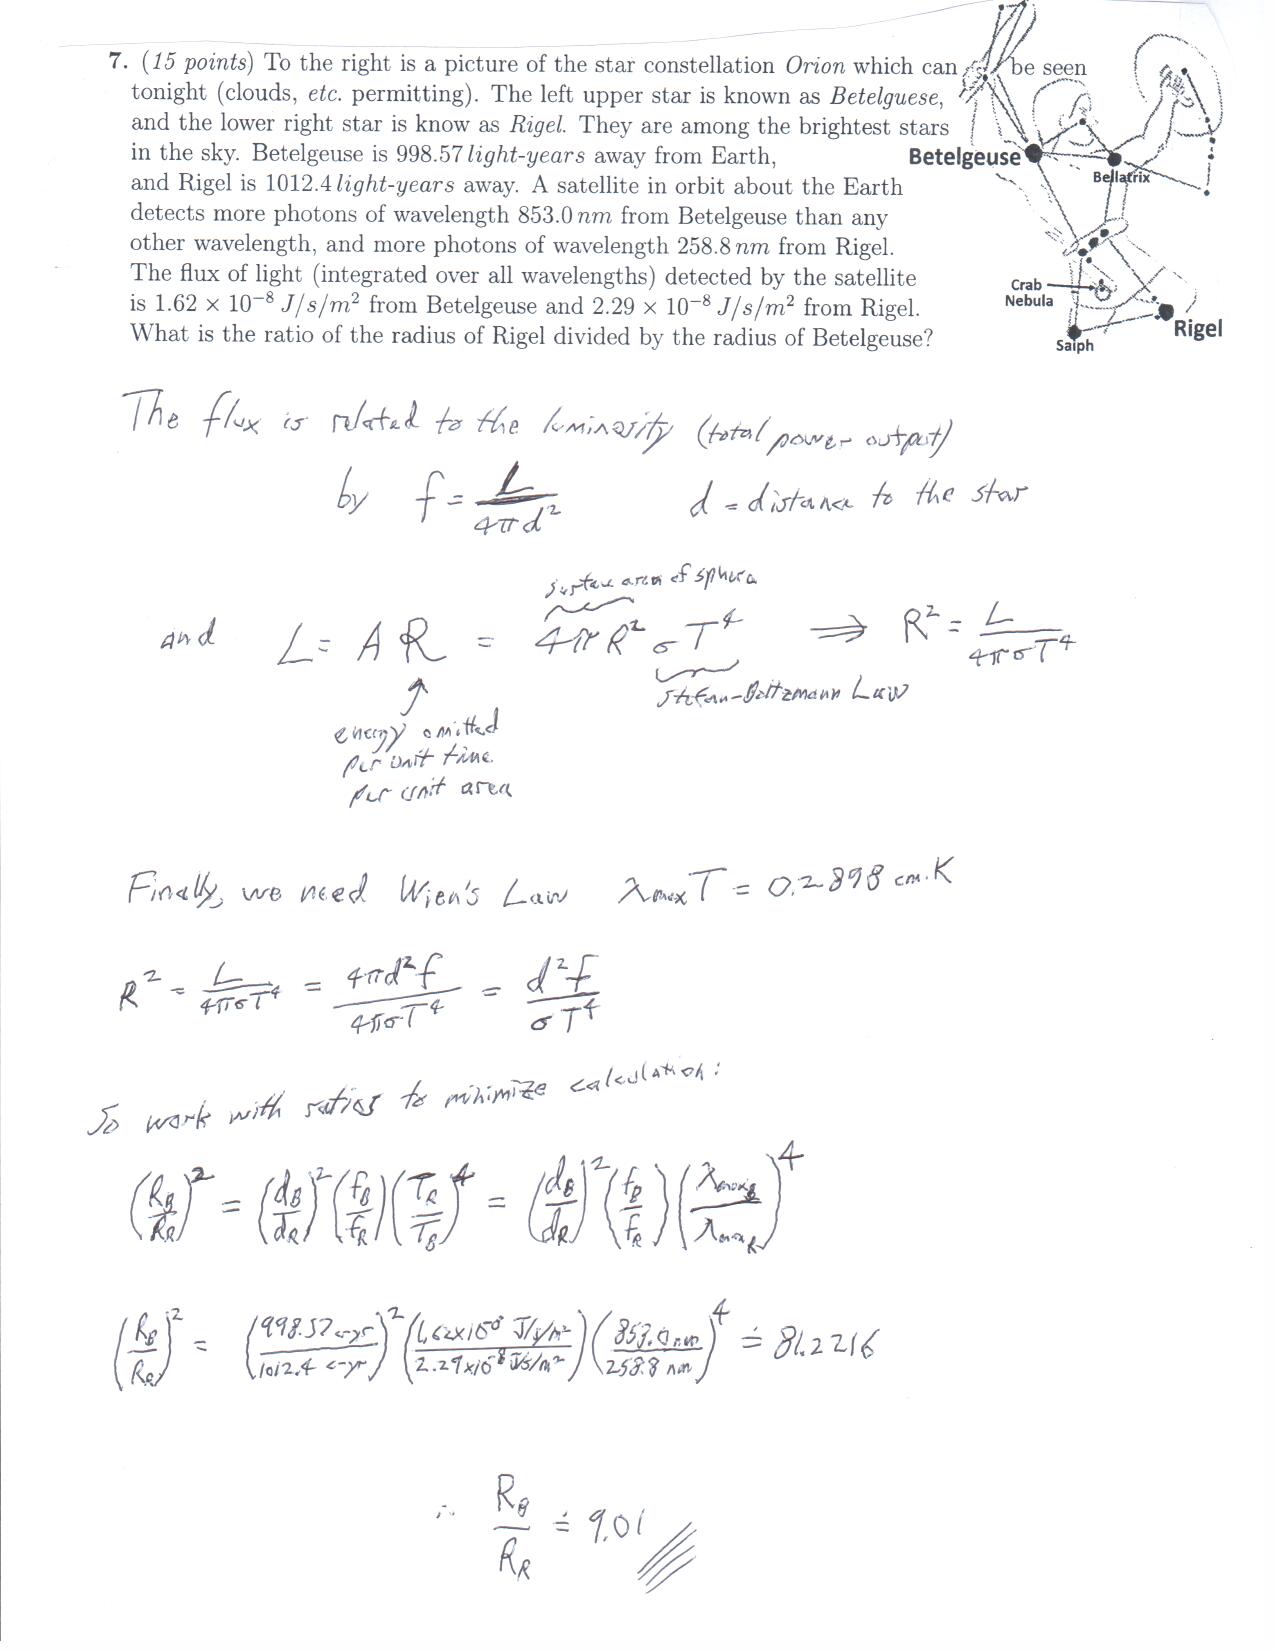 7. (15 points) To the right is a picture of the star constellation Orion which can be seen
tonight (clouds, etc. permitting). The left upper star is known as Betelguese,
and the lower right star is know as Rigel. They are among the brightest stars
in the sky. Betelgeuse is 998.57 light-years away from Earth,
and Rigel is 1012.4 light-years away. A satellite in orbit about the Earth
detects more photons of wavelength 853.0 nm from Betelgeuse than any
other wavelength, and more photons of wavelength 258.8 nm from Rigel.
The flux of light (integrated over all wavelengths) detected by the satellite
is 1.62 × 10⁻⁸ J/s/m² from Betelgeuse and 2.29 × 10⁻⁸ J/s/m² from Rigel.
What is the ratio of the radius of Rigel divided by the radius of Betelgeuse?
Betelgeuse
Bellatrix
Crab
Nebula
Saiph
Rigel
The flux is related to the luminosity (total power output)
by f = L / 4πd² d = distance to the star
surface area of sphere
and L = A R = 4πR² σT⁴ ⟹ R² = L / 4πσT⁴
Stefan-Boltzmann Law
energy emitted
per unit time
per unit area
Finally, we need Wien's Law λmax T = 0.2898 cm·K
R² = L / 4πσT⁴ = 4πd²f / 4πσT⁴ = d²f / σT⁴
So work with ratios to minimize calculation:
(R_B/R_R)² = (d_B/d_R)² (f_B/f_R) (T_R/T_B)⁴ = (d_B/d_R)² (f_B/f_R) (λmax_B/λmax_R)⁴
(R_B/R_R)² = (998.57 c-yr / 1012.4 c-yr)² (1.62×10⁻⁸ J/s/m² / 2.29×10⁻⁸ J/s/m²) (853.0 nm / 258.8 nm)⁴ ≐ 81.2216
∴ R_B/R_R ≐ 9.01